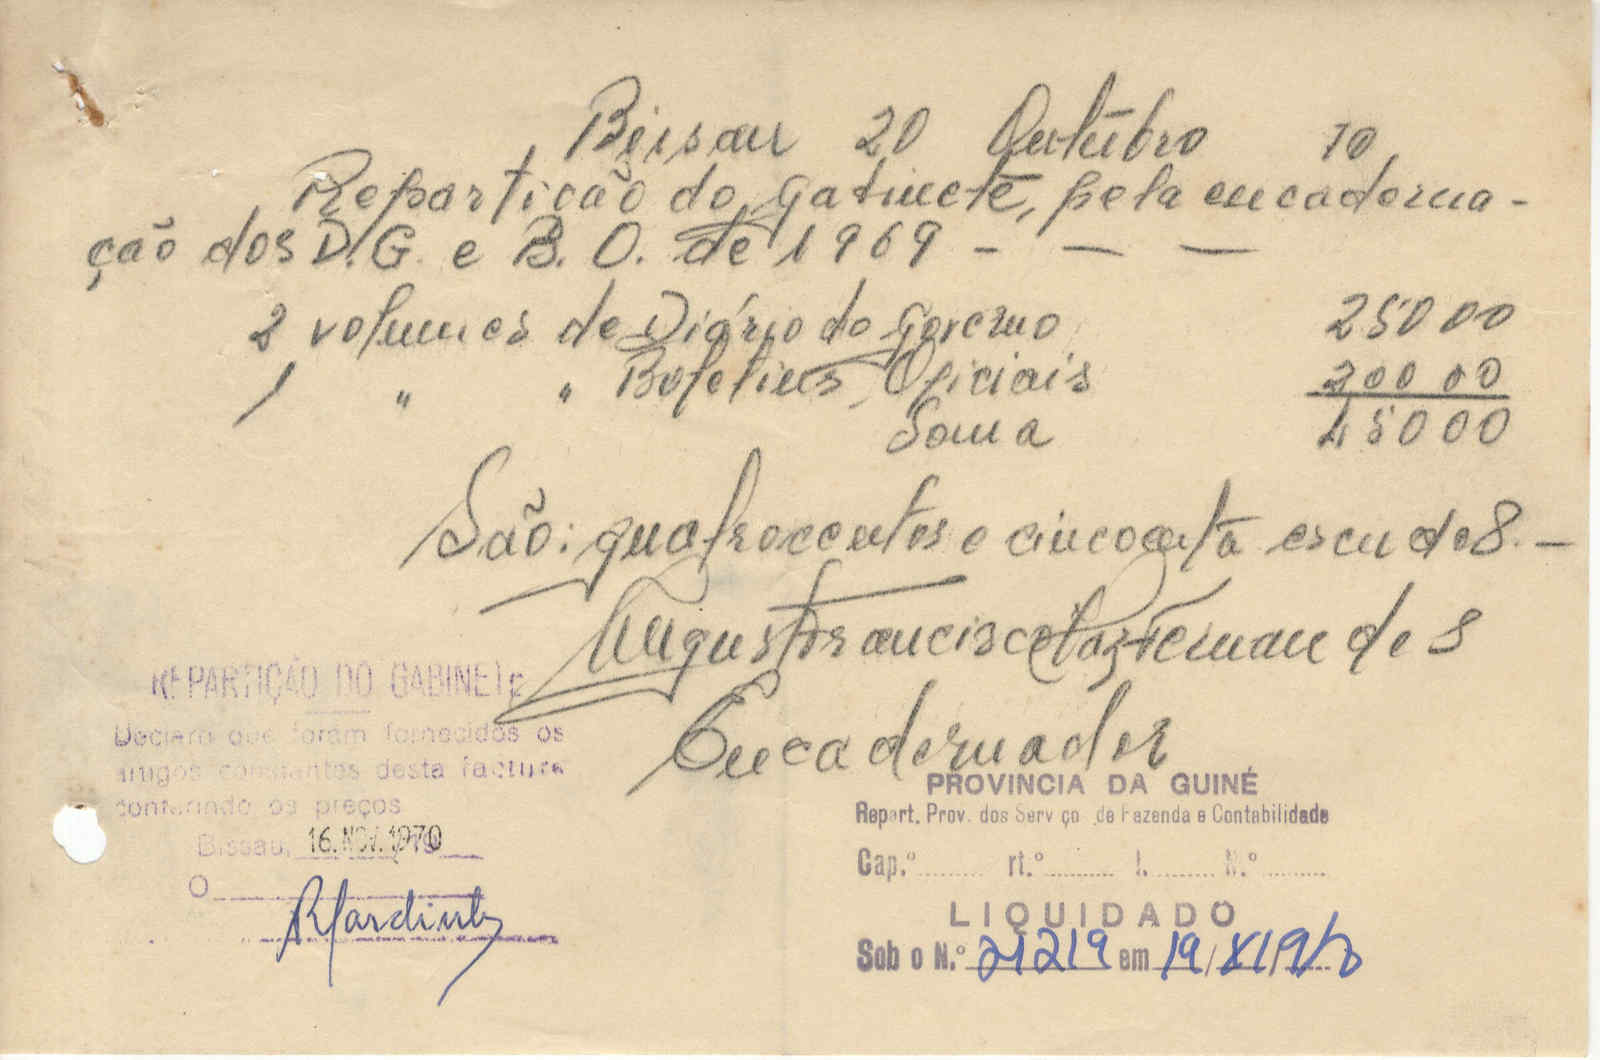 Bissau 20 Outubro 70
Repartição do gabinete, pela encaderna-
ção dos D.G. e B.O. de 1969 - — —
2 volumes de Diário do Governo 250 00
1 " " Boletins Oficiais 200 00
Soma 450 00
São: quatrocentos e cincoenta escudos. —
Augusto Francisco Vaz Fernandes
Encadernador
REPARTIÇÃO DO GABINETE
Declaro que foram fornecidos os
artigos constantes desta factura
conferindo os preços
Bissau, 16. NOV. 1970
O
PROVINCIA DA GUINÉ
Repart. Prov. dos Serviço de Fazenda e Contabilidade
Cap.º rt.º N.º
LIQUIDADO
Sob o N.º 21219 em 19/XI/970